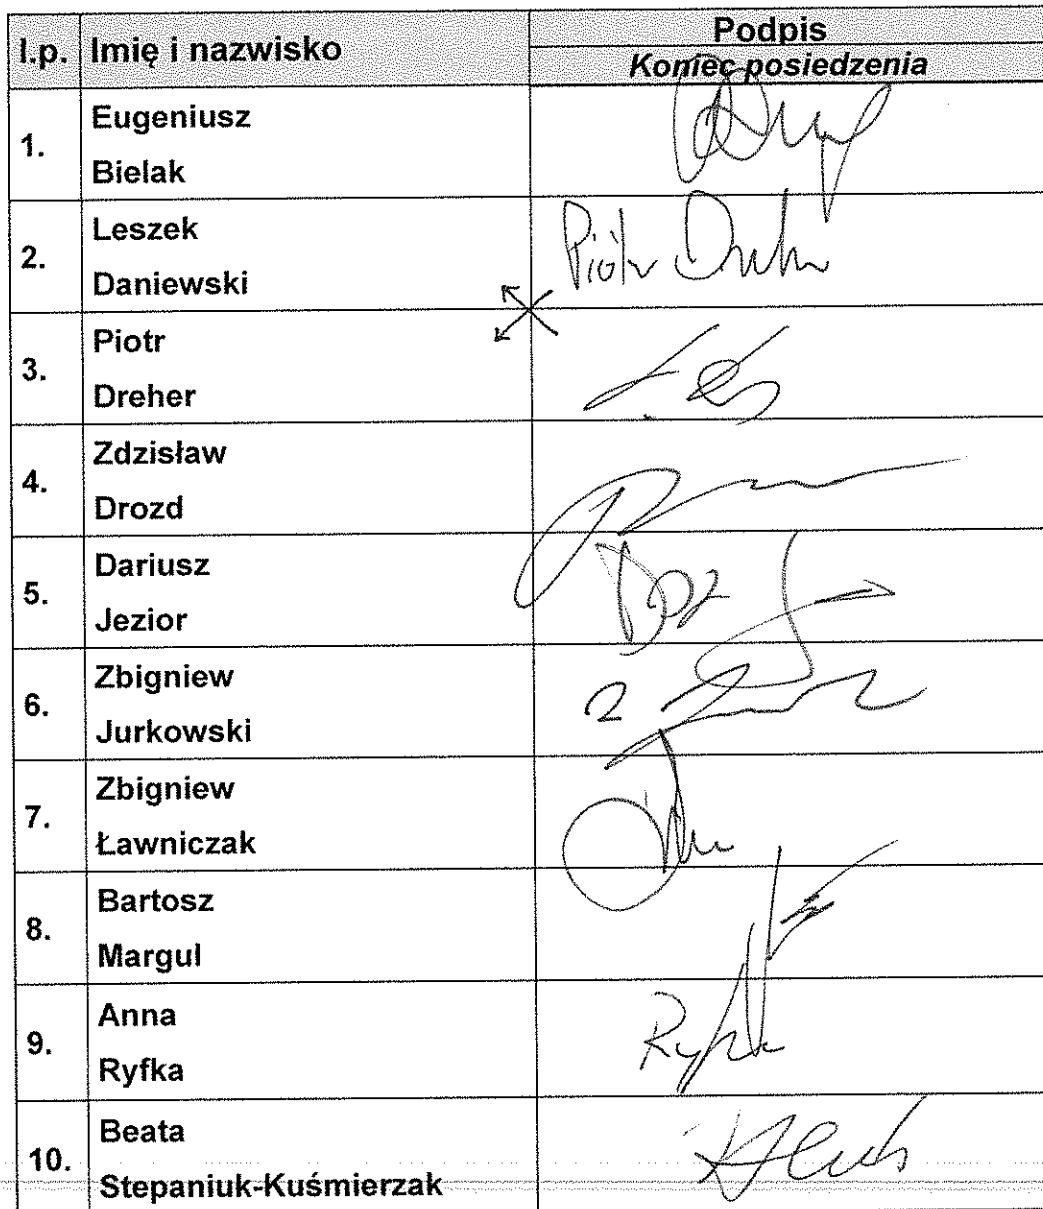 l.p. Imię i nazwisko Podpis
Koniec posiedzenia
1. Eugeniusz
Bielak
2. Leszek
Daniewski
Piotr Dreher
3. Piotr
Dreher
4. Zdzisław
Drozd
5. Dariusz
Jezior
6. Zbigniew
Jurkowski
7. Zbigniew
Ławniczak
8. Bartosz
Margul
9. Anna
Ryfka
Ryfka
10. Beata
Stepaniuk-Kuśmierzak